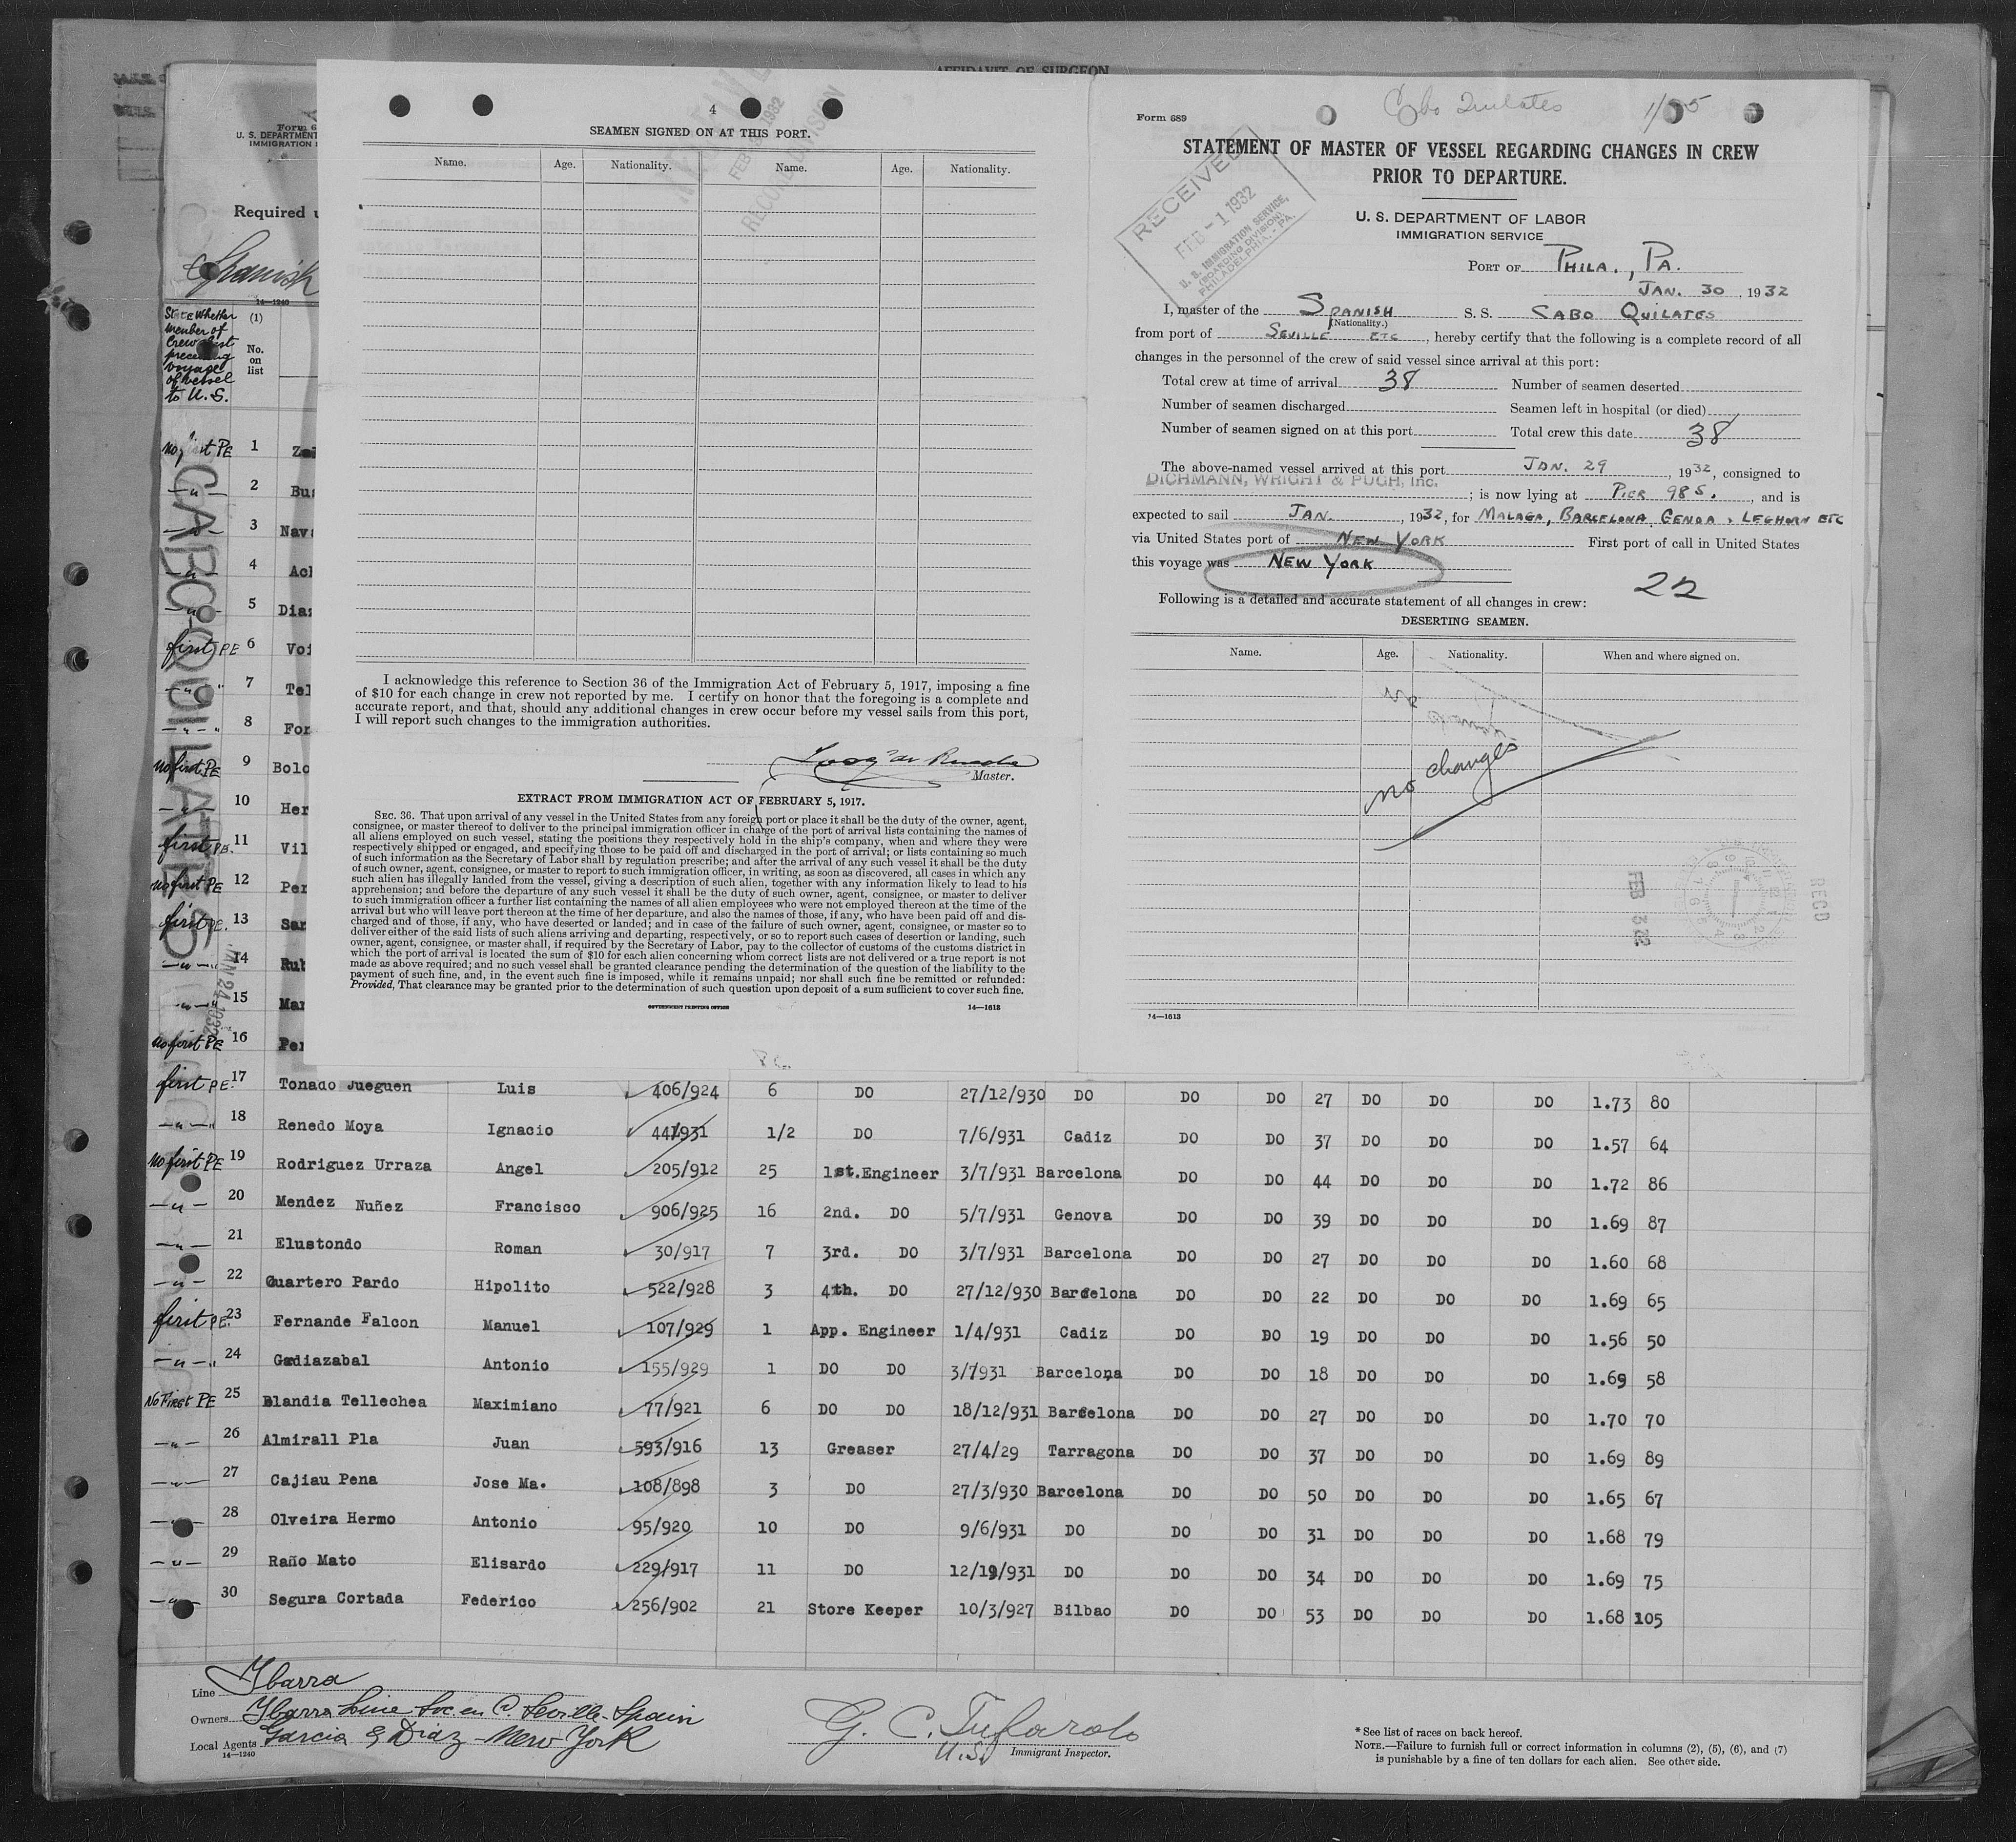 AFFIDAVIT OF SURGEON
Form 6
U. S. DEPARTMENT
IMMIGRATION
Required
Spanish
14—1240
State Whether
member of
Crew last
preceding
voyage
of vessel
to U. S.
(1)
No.
on
list
4
SEAMEN SIGNED ON AT THIS PORT.
Name. Age. Nationality. Name. Age. Nationality.
FEB 3 1932
RECORD DIVISION
I acknowledge this reference to Section 36 of the Immigration Act of February 5, 1917, imposing a fine
of $10 for each change in crew not reported by me. I certify on honor that the foregoing is a complete and
accurate report, and that, should any additional changes in crew occur before my vessel sails from this port,
I will report such changes to the immigration authorities.
Master.
EXTRACT FROM IMMIGRATION ACT OF FEBRUARY 5, 1917.
SEC. 36. That upon arrival of any vessel in the United States from any foreign port or place it shall be the duty of the owner, agent,
consignee, or master thereof to deliver to the principal immigration officer in charge of the port of arrival lists containing the names of
all aliens employed on such vessel, stating the positions they respectively hold in the ship's company, when and where they were
respectively shipped or engaged, and specifying those to be paid off and discharged in the port of arrival; or lists containing so much
of such information as the Secretary of Labor shall by regulation prescribe; and after the arrival of any such vessel it shall be the duty
of such owner, agent, consignee, or master to report to such immigration officer, in writing, as soon as discovered, all cases in which any
such alien has illegally landed from the vessel, giving a description of such alien, together with any information likely to lead to his
apprehension; and before the departure of any such vessel it shall be the duty of such owner, agent, consignee, or master to deliver
to such immigration officer a further list containing the names of all alien employees who were not employed thereon at the time of the
arrival but who will leave port thereon at the time of her departure, and also the names of those, if any, who have been paid off and dis-
charged and of those, if any, who have deserted or landed; and in case of the failure of such owner, agent, consignee, or master so to
deliver either of the said lists of such aliens arriving and departing, respectively, or so to report such cases of desertion or landing, such
owner, agent, consignee, or master shall, if required by the Secretary of Labor, pay to the collector of customs of the customs district in
which the port of arrival is located the sum of $10 for each alien concerning whom correct lists are not delivered or a true report is not
made as above required; and no such vessel shall be granted clearance pending the determination of the question of the liability to the
payment of such fine, and, in the event such fine is imposed, while it remains unpaid; nor shall such fine be remitted or refunded:
Provided, That clearance may be granted prior to the determination of such question upon deposit of a sum sufficient to cover such fine.
GOVERNMENT PRINTING OFFICE 14—1613
Cabo Quilates
Form 689
STATEMENT OF MASTER OF VESSEL REGARDING CHANGES IN CREW
PRIOR TO DEPARTURE.
U. S. DEPARTMENT OF LABOR
IMMIGRATION SERVICE
RECEIVED
FEB - 1 1932
U. S. IMMIGRATION SERVICE,
(BOARDING DIVISION),
PHILADELPHIA, - PA.
PORT OF PHILA., PA.
JAN. 30, 1932
I, master of the SPANISH S. S. CABO QUILATES
(Nationality.)
from port of SEVILLE ETC, hereby certify that the following is a complete record of all
changes in the personnel of the crew of said vessel since arrival at this port:
Total crew at time of arrival 38 Number of seamen deserted
Number of seamen discharged Seamen left in hospital (or died)
Number of seamen signed on at this port Total crew this date 38
The above-named vessel arrived at this port JAN. 29, 1932, consigned to
DICHMANN, WRIGHT & PUGH, Inc.
; is now lying at PIER 98 S., and is
expected to sail JAN., 1932, for MALAGA, BARCELONA, GENOA, LEGHORN ETC
via United States port of NEW YORK First port of call in United States
this voyage was NEW YORK
22
Following is a detailed and accurate statement of all changes in crew:
DESERTING SEAMEN.
Name. Age. Nationality. When and where signed on.
no changes
FEB 3 32
REC'D
14—1613
CABO QUILATES
JAN 24 1932
no first PE 1
—"— 2 Bus
—"— 3 Nav
—"— 4 Ac
—"— 5 Dia
first PE 6 Voi
—"— 7 Tel
—"— 8 For
no first PE 9 Bolo
—"— 10 Her
first PE. 11 Vil
no first PE 12 Per
first PE. 13 San
—"— 14 Rub
—"— 15 Mar
no first PE 16 Per
first PE. 17 Tonado Jueguen Luis 406/924 6 DO 27/12/930 DO DO DO 27 DO DO DO 1.73 80
—"— 18 Renedo Moya Ignacio 441/931 1/2 DO 7/6/931 Cadiz DO DO 37 DO DO DO 1.57 64
no first PE 19 Rodriguez Urraza Angel 205/912 25 1st.Engineer 3/7/931 Barcelona DO DO 44 DO DO DO 1.72 86
—"— 20 Mendez Nuñez Francisco 906/925 16 2nd. DO 5/7/931 Genova DO DO 39 DO DO DO 1.69 87
—"— 21 Elustondo Roman 30/917 7 3rd. DO 3/7/931 Barcelona DO DO 27 DO DO DO 1.60 68
—"— 22 Cuartero Pardo Hipolito 522/928 3 4th. DO 27/12/930 Barcelona DO DO 22 DO DO DO 1.69 65
first PE. 23 Fernande Falcon Manuel 107/929 1 App. Engineer 1/4/931 Cadiz DO DO 19 DO DO DO 1.56 50
—"— 24 Gadiazabal Antonio 155/929 1 DO DO 3/7931 Barcelona DO DO 18 DO DO DO 1.69 58
No First PE 25 Blandia Tellechea Maximiano 77/921 6 DO DO 18/12/931 Barcelona DO DO 27 DO DO DO 1.70 70
—"— 26 Almirall Pla Juan 593/916 13 Greaser 27/4/29 Tarragona DO DO 37 DO DO DO 1.69 89
—"— 27 Cajiau Pena Jose Ma. 108/898 3 DO 27/3/930 Barcelona DO DO 50 DO DO DO 1.65 67
—"— 28 Olveira Hermo Antonio 95/920 10 DO 9/6/931 DO DO DO 31 DO DO DO 1.68 79
—"— 29 Raño Mato Elisardo 229/917 11 DO 12/19/931 DO DO DO 34 DO DO DO 1.69 75
—"— 30 Segura Cortada Federico 256/902 21 Store Keeper 10/3/927 Bilbao DO DO 53 DO DO DO 1.68 105
Line Ybarra
Owners Ybarra Line Soc. en C. Seville-Spain
Local Agents Garcia & Diaz - New York
14—1240
G. C. Tufarolo
U.S. Immigrant Inspector.
* See list of races on back hereof.
NOTE.—Failure to furnish full or correct information in columns (2), (5), (6), and (7)
is punishable by a fine of ten dollars for each alien. See other side.